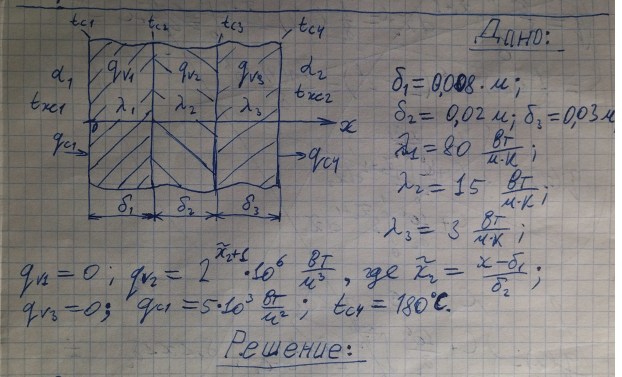 tc1 tc2 tc3 tc4
Дано:
α1 qv1 qv2 qv3 α2
tж1 λ1 λ2 λ3 tж2
0 x
qc1 qc4
δ1 δ2 δ3
δ1 = 0,008 · м;
δ2 = 0,02 м; δ3 = 0,03 м
λ1 = 80 Вт/м·К;
λ2 = 15 Вт/м·К;
λ3 = 3 Вт/м·К;
qv1 = 0; qv2 = 2^(x̃2+1) · 10^6 Вт/м³, где x̃2 = (x-δ1)/δ2;
qv3 = 0; qc1 = 5·10³ Вт/м²; tc4 = 180°C.
Решение: